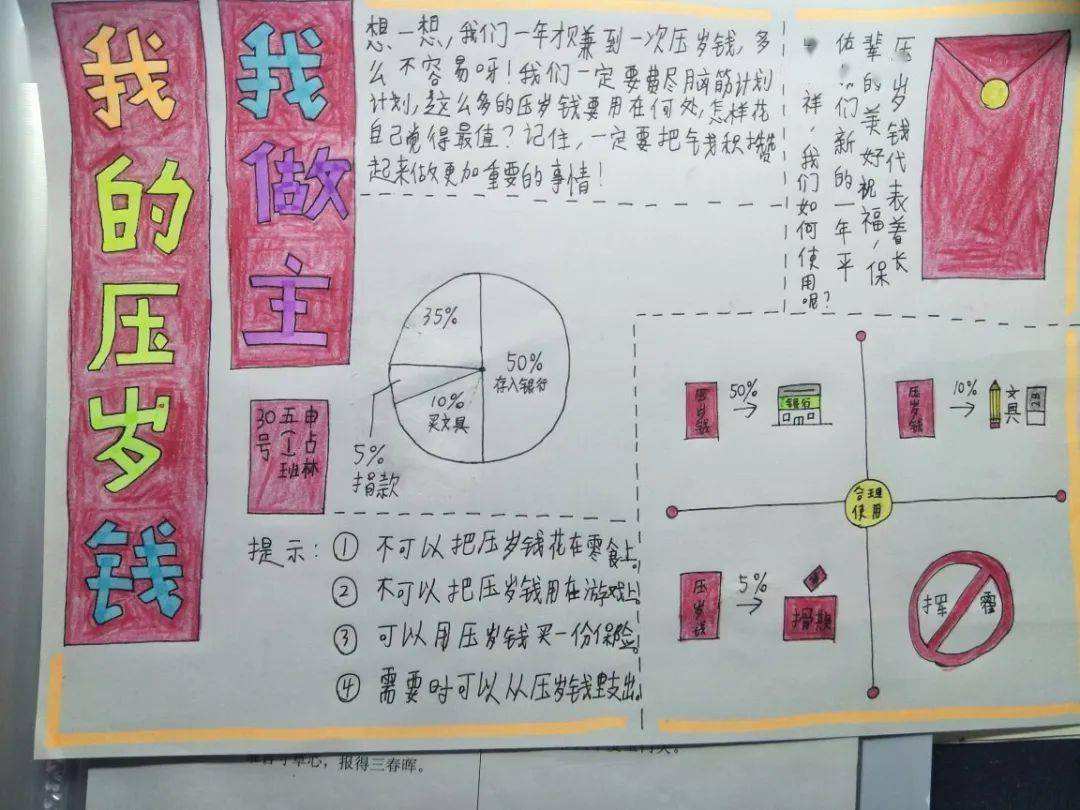 我的压岁钱
我做主
申占林
五(一)班
30号
想一想,我们一年才兼到一次压岁钱,多
么不容易呀!我们一定要费尽脑筋计划
计划,这么多的压岁钱要用在何处,怎样花
自己觉得最值?记住,一定要把钱积攒
起来做更加重要的事情!
压岁钱代表着长
辈的美好祝福,保
佑 们新的一年平
祥,我们如何使用呢?
35%
50%
存入银行
10%
买文具
5%
捐款
提示:① 不可以把压岁钱花在零食上。
② 不可以把压岁钱用在游戏上。
③ 可以用压岁钱买一份保险。
④ 需要时可以从压岁钱里支出。
压岁钱
50%
银行
压岁钱
10%
文具
合理
使用
压岁钱
5%
捐款
挥霍
报得三春晖。